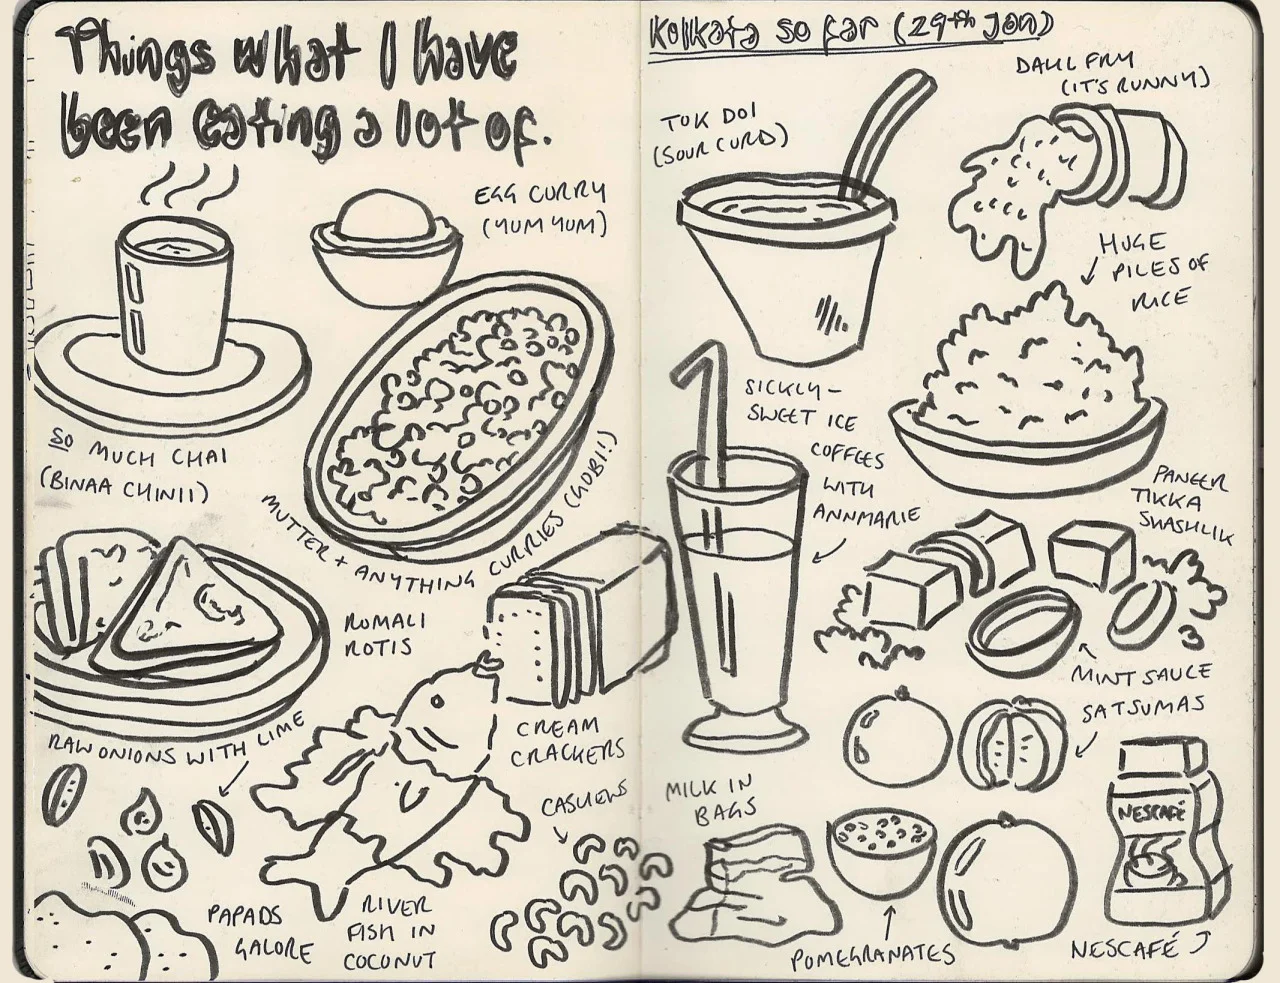 Things what I have
been eating a lot of.
EGG CURRY
(YUM YUM)
SO MUCH CHAI
(BINAA CHINII)
MUTTER + ANYTHING CURRIES (GOBI!!)
ROMALI
ROTIS
RAW ONIONS WITH LIME
CREAM
CRACKERS
CASHEWS
PAPADS
GALORE
RIVER
FISH IN
COCONUT
Kolkata so far (29th Jan)
DAHL FRY
(IT'S RUNNY)
TOK DOI
(SOUR CURD)
HUGE
PILES OF
RICE
SICKLY-
SWEET ICE
COFFEES
WITH
ANNMARIE
PANEER
TIKKA
SHASHLIK
MINT SAUCE
SATSUMAS
MILK IN
BAGS
NESCAFÉ
POMEGRANATES
NESCAFÉ